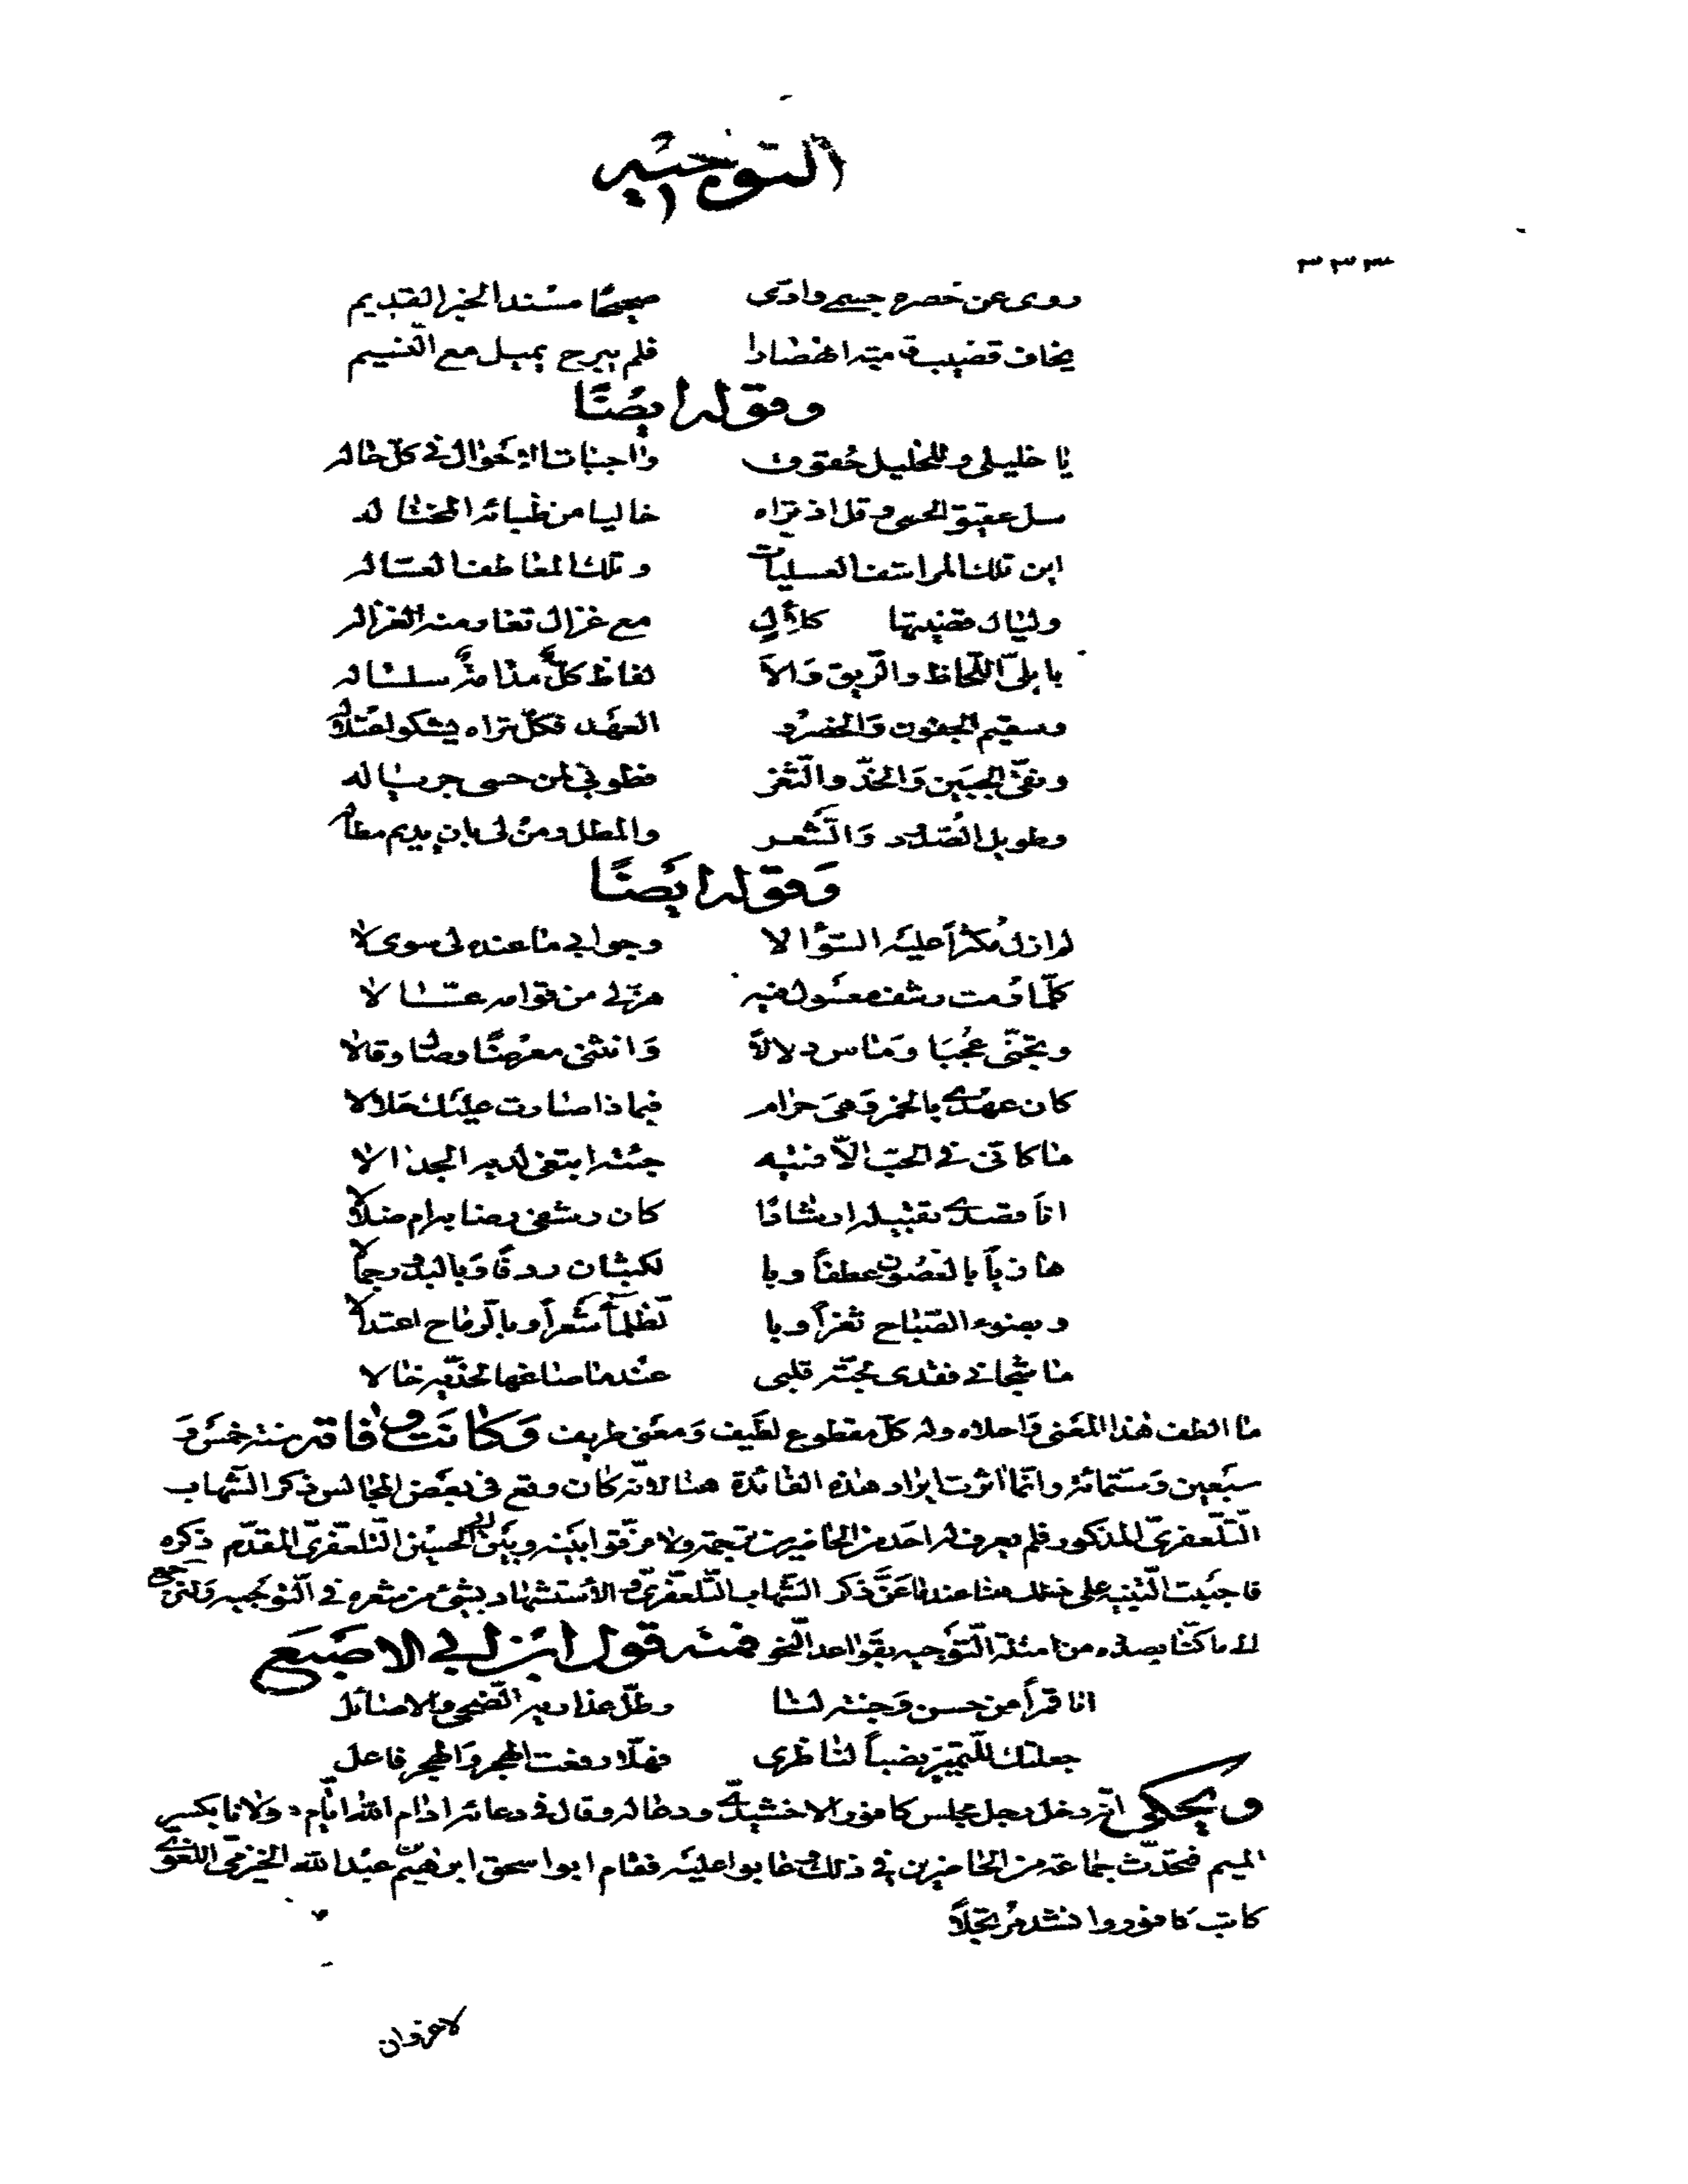 التوجيه
٣٣٣
روى عن خصره جسمي وادى صحيحًا مسند الخبر القديم
يخاف قضيب قامته انهضارا فلم يبرح يميل مع النسيم
وقوله ايضًا
يا خليلي وللخليل حُقوق واجبات الاخوال في كلّ حاله
سل عقيق الحمى وقل اذ تراه خاليا من ظبائه المختاله
اين تلك المراشف العسليات وتلك المعاطف العساله
وليال قضيتها كلآلٍ مع غزال تغار منه الغزاله
بابليّ اللّحاظ والرّيق والا لفاظ كلٌّ مدامةٌ سلساله
وسقيم الجفون والخصر و العهد فكلّ تراه يشكو اعتلاله
ونقيّ الجبين والخدّ والثّغر فطوبى لمن حسى جرياله
وطويل الصّدود والشّعر والمطل ومن لى بان يديم مطاله
وقوله ايضًا
لم ازل مكثراً عليه السّؤالا وجوابي ما عنده لى سوى لا
كلّما رمت رشف معسول فيه هزّ لي من قوامه عسّالا
وتجنّى عُجبَا ومَاس دلالاً وَانثنى معرضًا وصال وقالا
كان عهدي بالخمر وَهيَ حرام فبماذا صارت عليك حلالا
ما كانّى في الحبّ الّا فقيه جئته ابتغى لديه الجدالا
انا قصدي تقبيله ارشادًا كان رشفى رضابه ام ضلالا
هازياً بالغصون عطفاً وبا لكثبان ردفًا وَبالبدور جمالا
وبضوء الصّباح ثغراً وبا لظّلماء شعراً وبالرماح اعتدالا
ما شجاني فقدى محبّة قلبي عندما صاغها لخدّيه خالا
ما الطف هٰذا المعنى وَاحلاه وله كلّ مقطوع لطيف وَمعنى طريف وَكانَت وفاته سنة خمس وَ
سبعين وَستمائة وانّما اثرت ايراد هذه الفائدة هنا لانّه كان وقع في بعض المجالس ذكر الشّهاب
التّلعفريّ المذكور فلم يعرف له احد من الحاضرين ترجمة ولا فرّقوا بينه وبين ابي الحسين التّلعفريّ المقدّم ذكره
فاجبت التّنبيه على ذلك هنا عندما عَنَّ ذكر الشّهاب التّلعفريّ والاستشهاد بشئ من شعره في التّوجيه وَلنرجع
الى ما كنّا بصدده من امثلة التّوجيه بقَواعد النّحو فمنه قول ابن ابي الاصبع
ايا قمراً من حسن وَجنته لنا وظلّ عذاريه الضّحى والاصائل
جعلتك للتّمييز نصباً لناظرى فهلّا رفعت الهجر وَالهجر فاعل
ويحكى انّه دخل رجل مجلس كافور الاخشيديّ ودعا له وقال في دعائه ادام اللّه ايّام مولانا بكسر
الميم فتحدّث جماعة من الحاضرين في ذلك وعابوا عليه فقام ابو اسحق ابرهيم بن عبد اللّه الخيزميّ اللغوي
كاتب كافور وانشد مرتجلاً
لا غرو ان